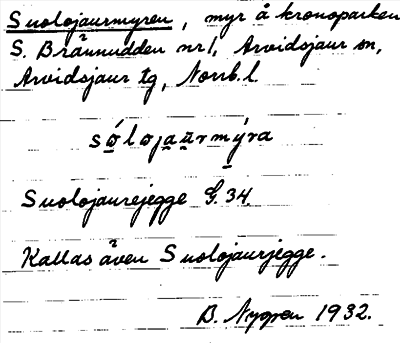 Suolojaurmyren, myr å kronoparken
S. Brännudden nr 1, Arvidsjaur sn,
Arvidsjaur tg, Norrb. l.
só̱loja̱u̱rmý̱ra
Suolojaurejegge G. 34.
Kallas även Suolojaurjegge.
B. Nygren 1932.